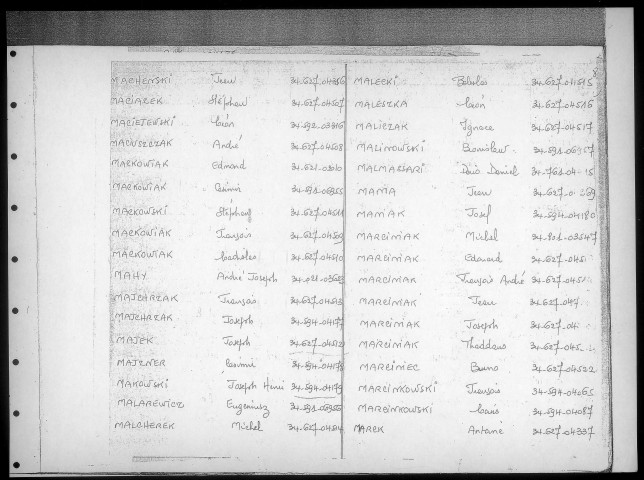 MACHENSKI Jean 34.627.04356
MACIAZEK Stéphan 34.627.04507
MACIEJEWSKI Léon 34.592.03316
André 34.627.04508
MACKOWIAK Edmond
MACKOWIAK Casimir 34.591.06955
MACKOWSKI Stéphan 34.627.04511
MACKOWIAK François 34.627.04509
MACKOWIAK Ladislas 34.627.04510
MAHY André Joseph
MAJCHRZAK François 34.627.04513
MAJCHRZAK Joseph 34.594.04177
MAJEK Joseph 34.627.04512
MAJZNER Casimir 34.594.04178
MAKOWSKI Joseph Henri 34.594.04179
MALAREWICZ Eugeniusz 34.591.06956
MALCHEREK Michel 34.627.04514
MALECKI Boleslas 34.627.04515
MALESZKA Léon 34.627.04516
MALICZAK Ignace 34.627.04517
MALINOWSKI Bronislaw 34.591.06957
Daniel
MANIA Jean
MANIAK Josef 34.594.04180
MARCINIAK Michel 34.801.03547
MARCINIAK Edouard 34.627.0451
MARCINIAK François André 34.627.0451
MARCINIAK Jean 34.627.04
MARCINIAK Joseph 34.627.04
MARCINIAK Thaddeus 34.627.045
MARCINIEC Bruno 34.627.04522
MARCINKOWSKI François 34.594.04065
MARCINKOWSKI Louis 34.594.04087
MAREK Antoine 34.627.04337